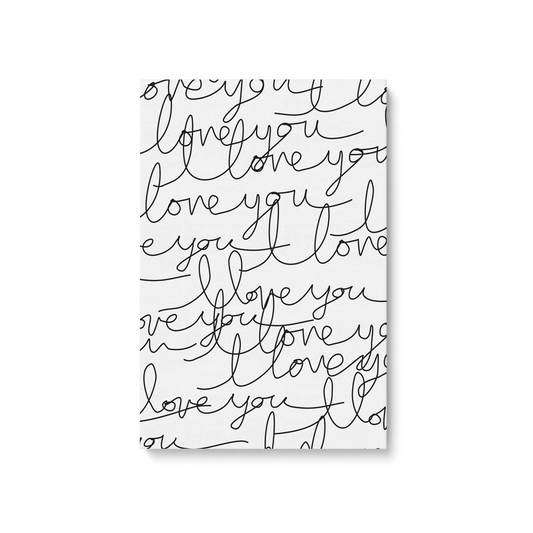 love you I lo
I love you
I love you
love you I
e you I love
I love you
ove you I love yo
I love y
I love you I lo
you I l